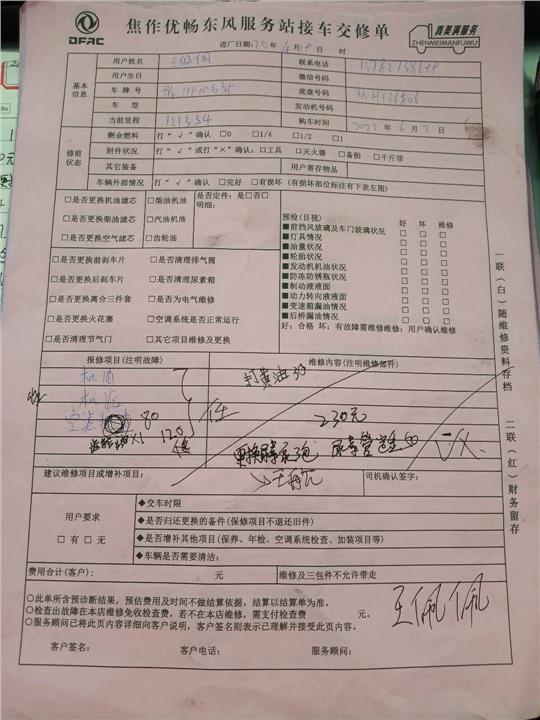 DFAC
焦作优畅东风服务站接车交修单
真美满服务
ZHENMEIMANFUWU
进厂日期: 25年4月 日 时
基本信息
用户姓名
联系电话
用户生日
微信号码
车牌号
底盘号码
车型
发动机号码
当前里程 121554
购车时间 2022年6月7日
修前状态
剩余燃料 打“√”确认 □0 □1/4 □1/2 □1
附件状况 打“√”或打“×”确认:□工具 □灭火器 □备胎 □千斤顶
其它装备
用户寄存物品
车辆外部情况 打“√”确认 □完好 □有损坏(有损坏部位标注有下表左图)
□是否更换机油滤芯 □柴油机油 是否定件:是□否□
明细:
□是否更换柴油滤芯 □汽油机油
□是否更换空气滤芯 □齿轮油
□是否更换前刹车片 □是否清理排气筒
□是否更换后刹车片 □是否清理尿素箱
□是否更换离合三件套 □是否为电气维修
□是否更换火花塞 □空调系统是否正常运行
□是否清理节气门 □其它项目维修及更换
预检(目视) 好 坏 维修
■前挡风玻璃及车门玻璃状况
■灯具情况
■油量状况
■轮胎状况
■发动机机油状况
■防冻防锈瓶状况
■制动液液面
■动力转向液液面
■变速箱漏油情况
■后桥漏油情况
好:合格 坏:有故障需维修维修:用户确认维修
报修项目(注明故障)
维修内容(注明维修部件)
机油
机滤
80
120
打黄油30
230元
更换
建议维修项目或增补项目:
司机确认签字:
用户要求
□有 □无
◆交车时限
◆是否归还更换的备件(保修项目不退还旧件)
◆是否增补其他项目(保养、年检、空调系统检查、加装项目等)
◆车辆是否需要清洁:
费用合计(客户): 元
维修及三包件不允许带走
◇此单所含预诊断结果,预估费用及时间不做结算依据,结算以结算单为准。
◇检查出故障在本店维修免收检查费,若不在本店维修,需支付检查费 元。
◇服务顾问已将此页内容详细向客户说明,客户签名则表示已理解并接受此页内容。
王佩佩
客户签名: 客户电话: 服务顾问:
一联(白)随维修资料存档
二联(红)财务留存